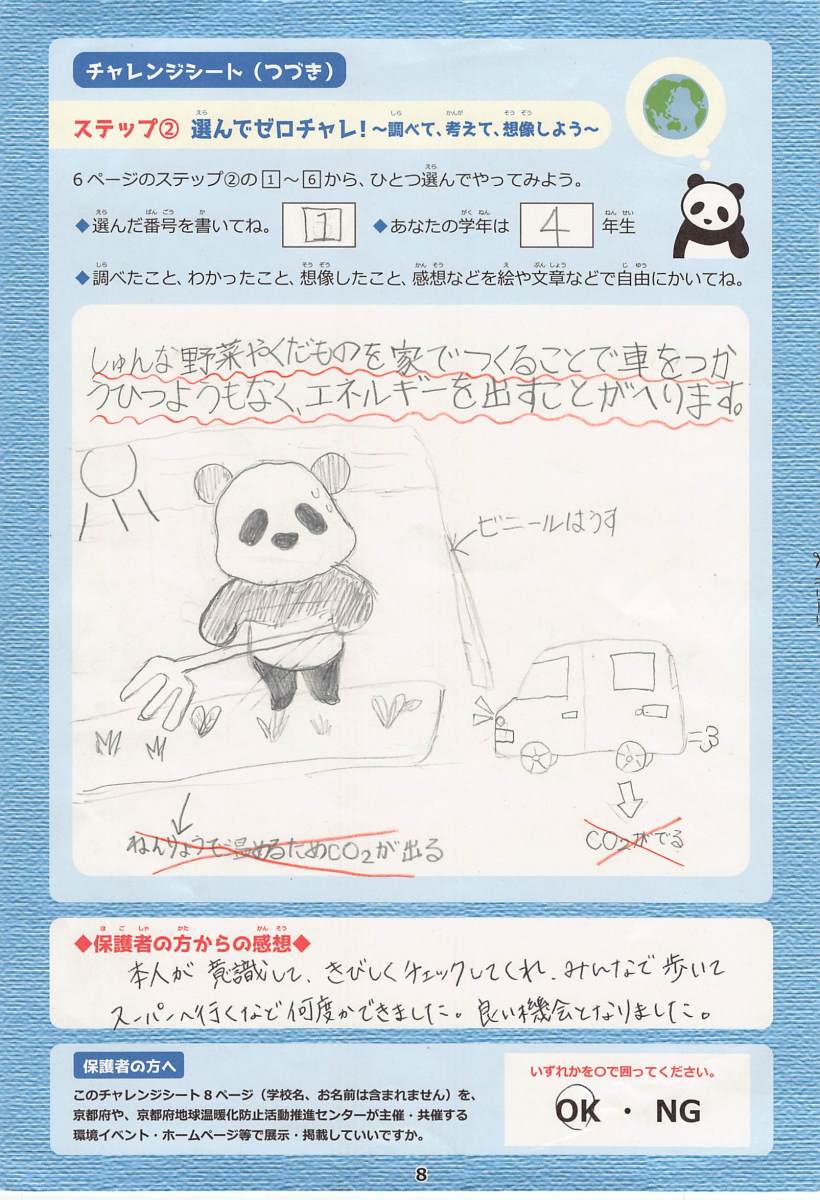 チャレンジシート（つづき）
ステップ② 選んでゼロチャレ！～調べて、考えて、想像しよう～
えら しら かんが そう ぞう
6ページのステップ②の1～6から、ひとつ選んでやってみよう。
えら
◆選んだ番号を書いてね。 1 ◆あなたの学年は 4 年生
えら ばん ごう か がく ねん ねん せい
◆調べたこと、わかったこと、想像したこと、感想などを絵や文章などで自由にかいてね。
しら そう ぞう かん そう え ぶん しょう じ ゆう
しゅんな野菜やくだものを家でつくることで車をつか
うひつようもなく、エネルギーを出すことがへります。
ビニールはうす
ねんりょうで温めるためCO₂が出る
CO₂がでる
◆保護者の方からの感想◆
ほ ご しゃ かた かん そう
本人が意識して、きびしくチェックしてくれ、みんなで歩いて
スーパーへ行くなど何度かできました。良い機会となりました。
保護者の方へ
このチャレンジシート8ページ（学校名、お名前は含まれません）を、
京都府や、京都府地球温暖化防止活動推進センターが主催・共催する
環境イベント・ホームページ等で展示・掲載していいですか。
いずれかを○で囲ってください。
OK ・ NG
8